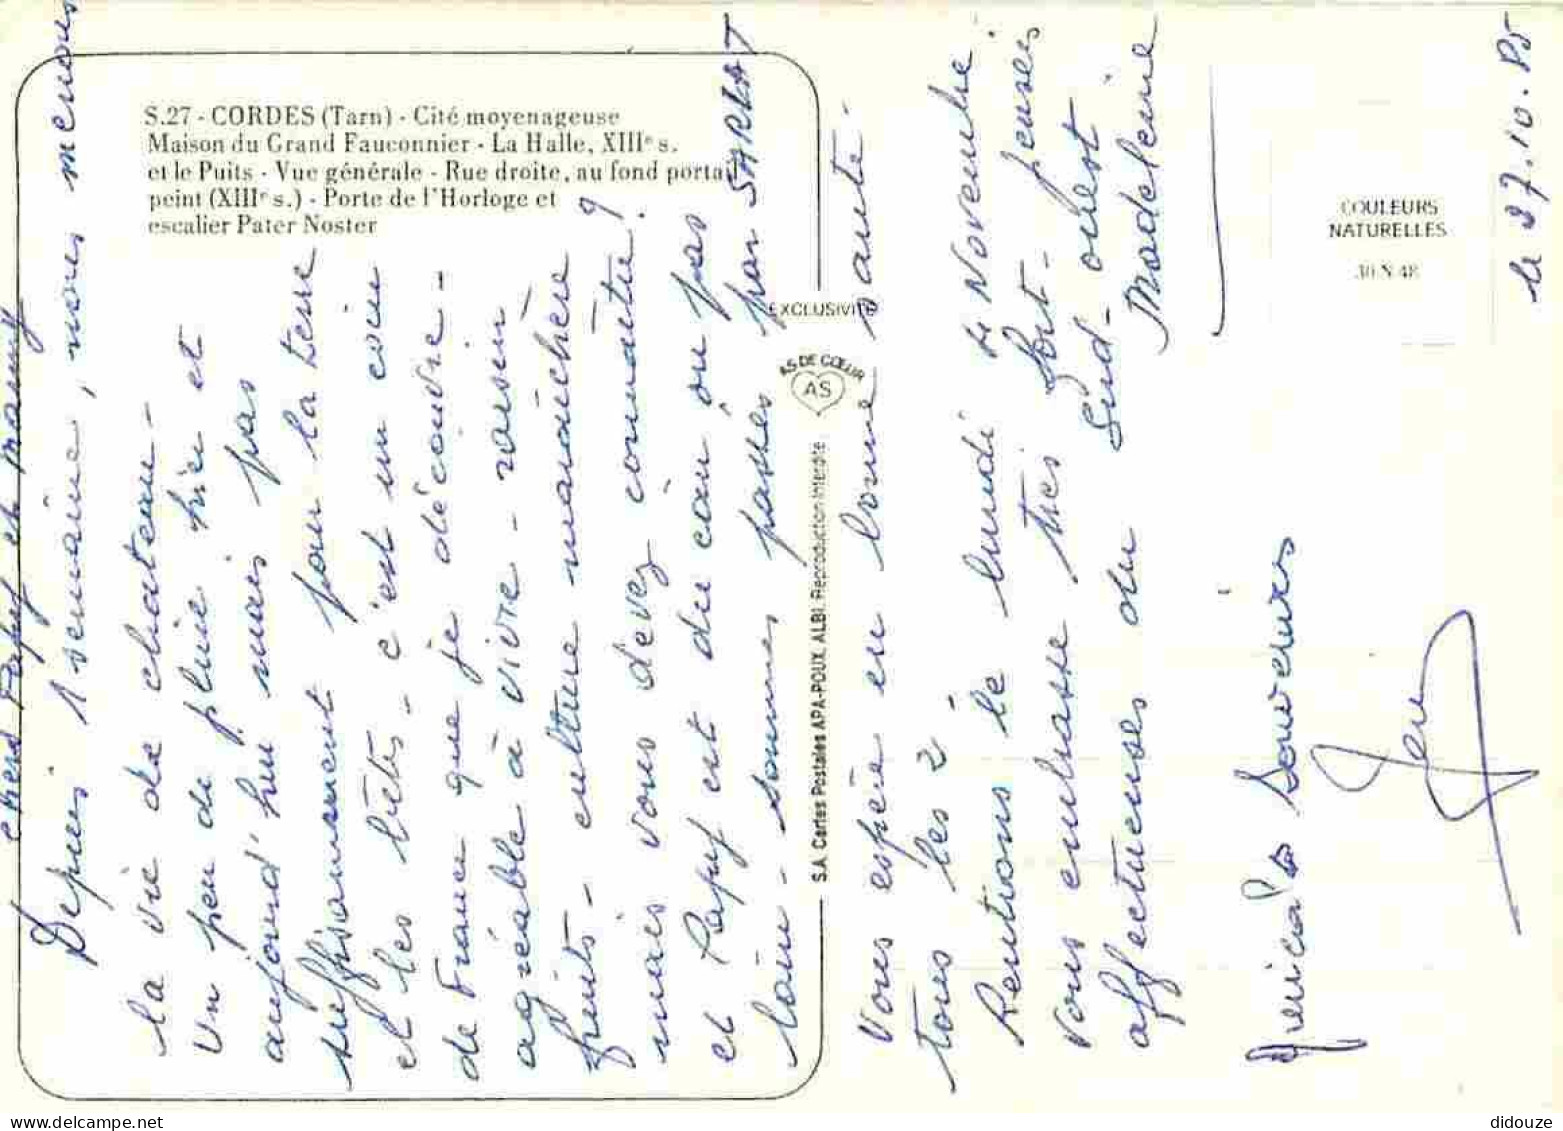 S.27 - CORDES (Tarn) - Cité moyenageuse
Maison du Grand Fauconnier - La Halle, XIIIe s.
et le Puits - Vue générale - Rue droite, au fond portail
peint (XIIIe s.) - Porte de l'Horloge et
escalier Pater Noster
EXCLUSIVITÉ
AS DE CŒUR
AS
S.A. Cartes Postales APA-POUX, ALBI. Reproduction Interdite
COULEURS
NATURELLES
30 N 48
le 27.10.85
Chers Papy et Mamy
Depuis 1 semaine, nous menons
la vie de chateau -
Un peu de pluie hier et
aujourd'hui mais pas
suffisamment pour la terre
et les bêtes - c'est un coin
de France que je découvre -
agréable à vivre - raisin
fruits - culture maraîchère
mais vous devez connaître !
et Papy est du coin ou pas
loin - sommes passés par SARLAT
Vous espère en bonne santé -
tous les 2 -
Rentrons le lundi 4 Novembre -
Vous embrasse très fort - pensées
affectueuses du Sud-ouest
Madeleine
Amicals Souvenirs
didouze